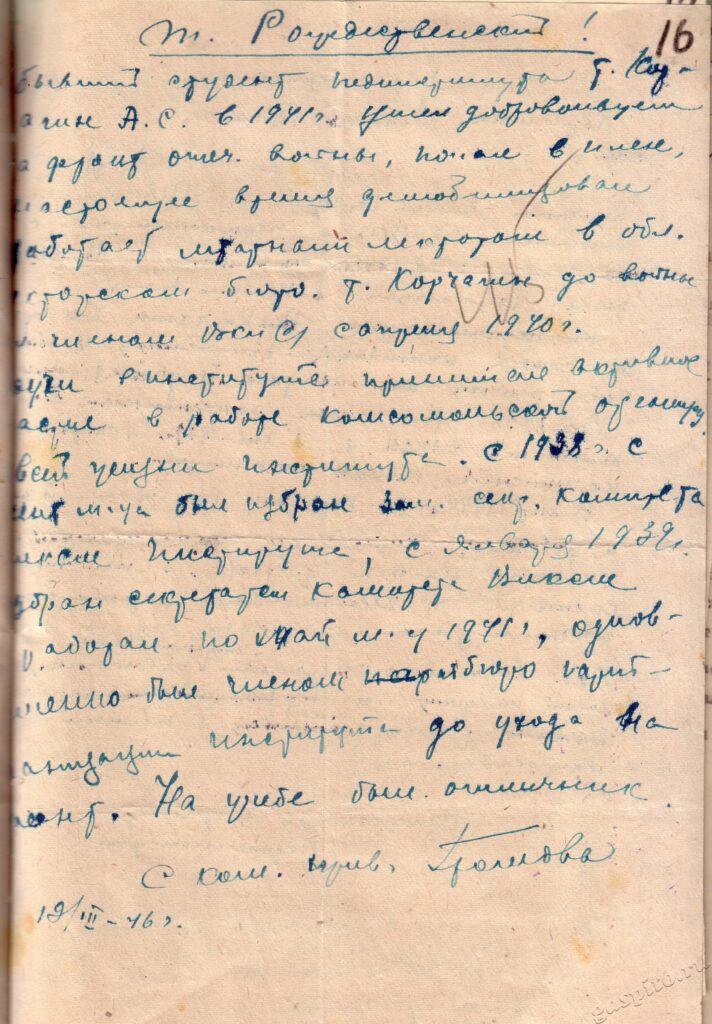 16
т. Рождественский!
бывший студент пединститута т. Кор-
чагин А.С. в 1941г. ушел добровольцем
на фронт отеч. войны, попал в плен,
настоящее время демобилизован
работает штатным лектором в обл.
лекторском бюро. т. Корчагин до войны
членом ВКП(б) с апреля 1940г.
институте принимал активное
участие в работе комсомольской организ.
всей жизни института. С 1938 г. с
сент. м-ца был избран зам. секр. комитета
института, с января 1939г.
избран секретарем комитета ВЛКСМ
работал по май м-ц 1941г, однов-
ременно был членом партбюро парт-
организации института до ухода на
фронт. На учебе был отличник.
С ком. прив. Громова
19/III-46г.
gaspiro.ru